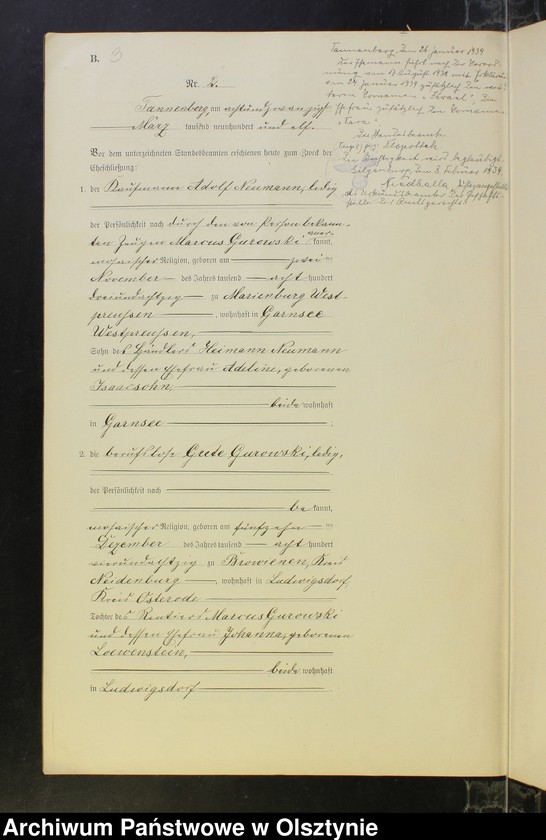 B. 3
Nr. 2.
Tannenberg, am achtundzwanzigst
März tausend neunhundert und elf.
Vor dem unterzeichneten Standesbeamten erschienen heute zum Zweck der
Eheschließung:
1. der Kaufmann Adolf Neumann, ledig
der Persönlichkeit nach durch den von Person bekann-
ten Zeugen Marcus Gurowski aner-kannt,
mosaischer Religion, geboren am zwei ten
November des Jahres tausend acht hundert
dreiundachtzig zu Marienburg West-
preussen, wohnhaft in Garnsee
Westpreussen,
Sohn des Händlers Heimann Neumann
und dessen Ehefrau Adeline, geborenen
Isaacsohn,
beide wohnhaft
in Garnsee ;
2. die berufslose Grete Gurowski, ledig,
der Persönlichkeit nach
be kannt,
mosaischer Religion, geboren am fünfzehn ten
Dezember des Jahres tausend acht hundert
vierundachtzig zu Browienen, Kreis
Neidenburg, wohnhaft in Ludwigsdorf,
Kreis Osterode
Tochter des Rentiers Marcus Gurowski
und dessen Ehefrau Johanna, geborenen
Loewenstein,
beide wohnhaft
in Ludwigsdorf
Tannenberg, den 26. Januar 1939
Der Ehemann führt nach der Verord-
nung vom 17 August 1938 mit Erklärung
vom 24. Januar 1939 zusätzlich den wei-
teren Vornamen "Israel". Die
Ehefrau zusätzlich den Vornamen
"Sara"
Der Standesbeamte
Klopottek
Die Richtigkeit wird beglaubigt.
Gilgenburg, den 8. Februar 1939.
Niedballa Justizangestellter
als Urkundsbeamter der Geschäfts-
stelle des Amtsgerichts
Archiwum Państwowe w Olsztynie